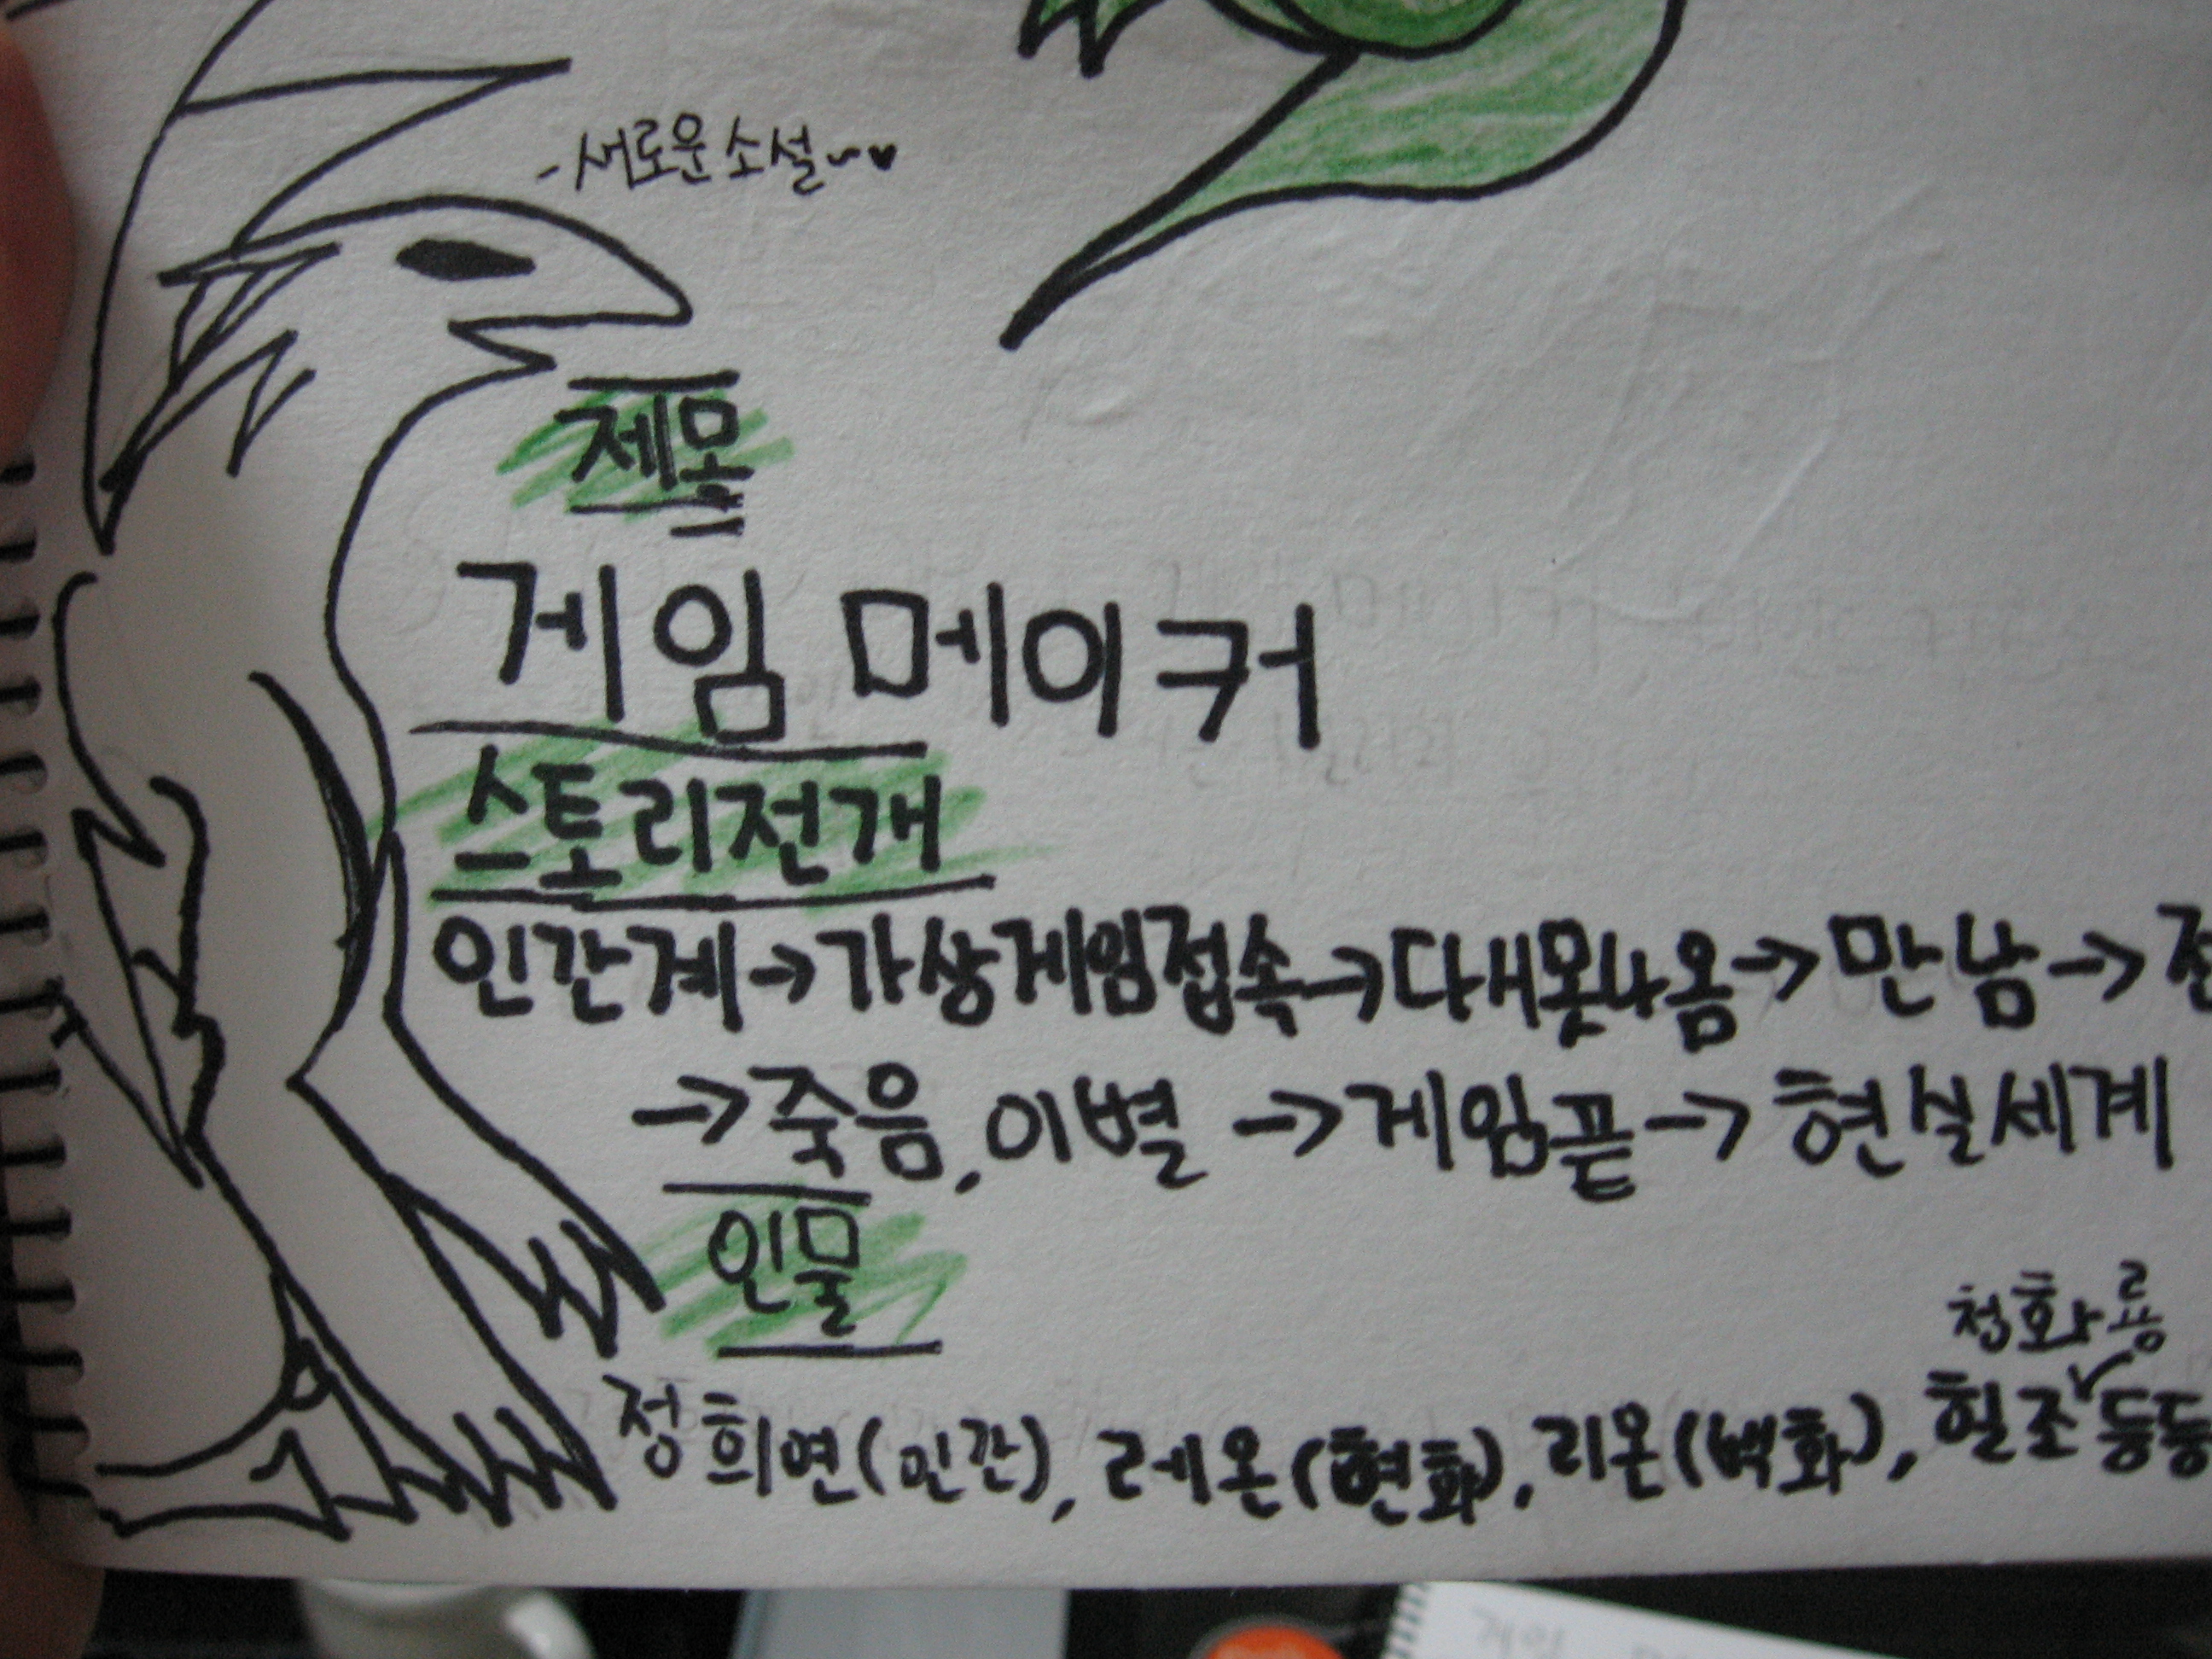 -새로운 소설~♥
제목
게임 메이커
스토리전개
인간계→가상게임접속→다내못나옴→만남→
→죽음, 이별→게임끝→현실세계
인물
청화룡
정희연(인간), 레온(현화), 리온(백화), 힐조 등등